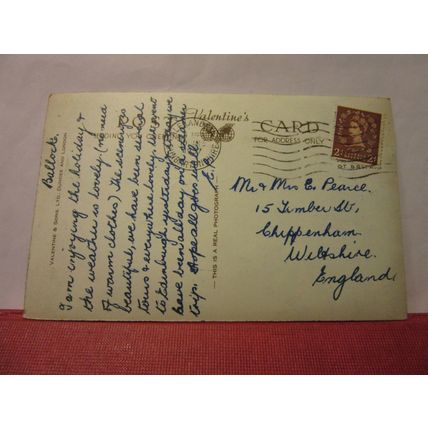 Balloch.
I am enjoying the holiday &
the weather is lovely (no need
of warm clothes) The scenery is
beautiful, we have been several
tours & everywhere lovely. We went
to Edinburgh yesterday & today we
have been all day on a steamer
trip. Hope all goes well
E. E.
VALENTINE & SONS. LTD., DUNDEE AND LONDON
THIS IS A REAL PHOTOGRAPH
Valentine's
CARD
FOR ADDRESS ONLY
2½D 2½D
Mr & Mrs E. Pearce,
15 Timber St,
Chippenham.
Wiltshire.
England.